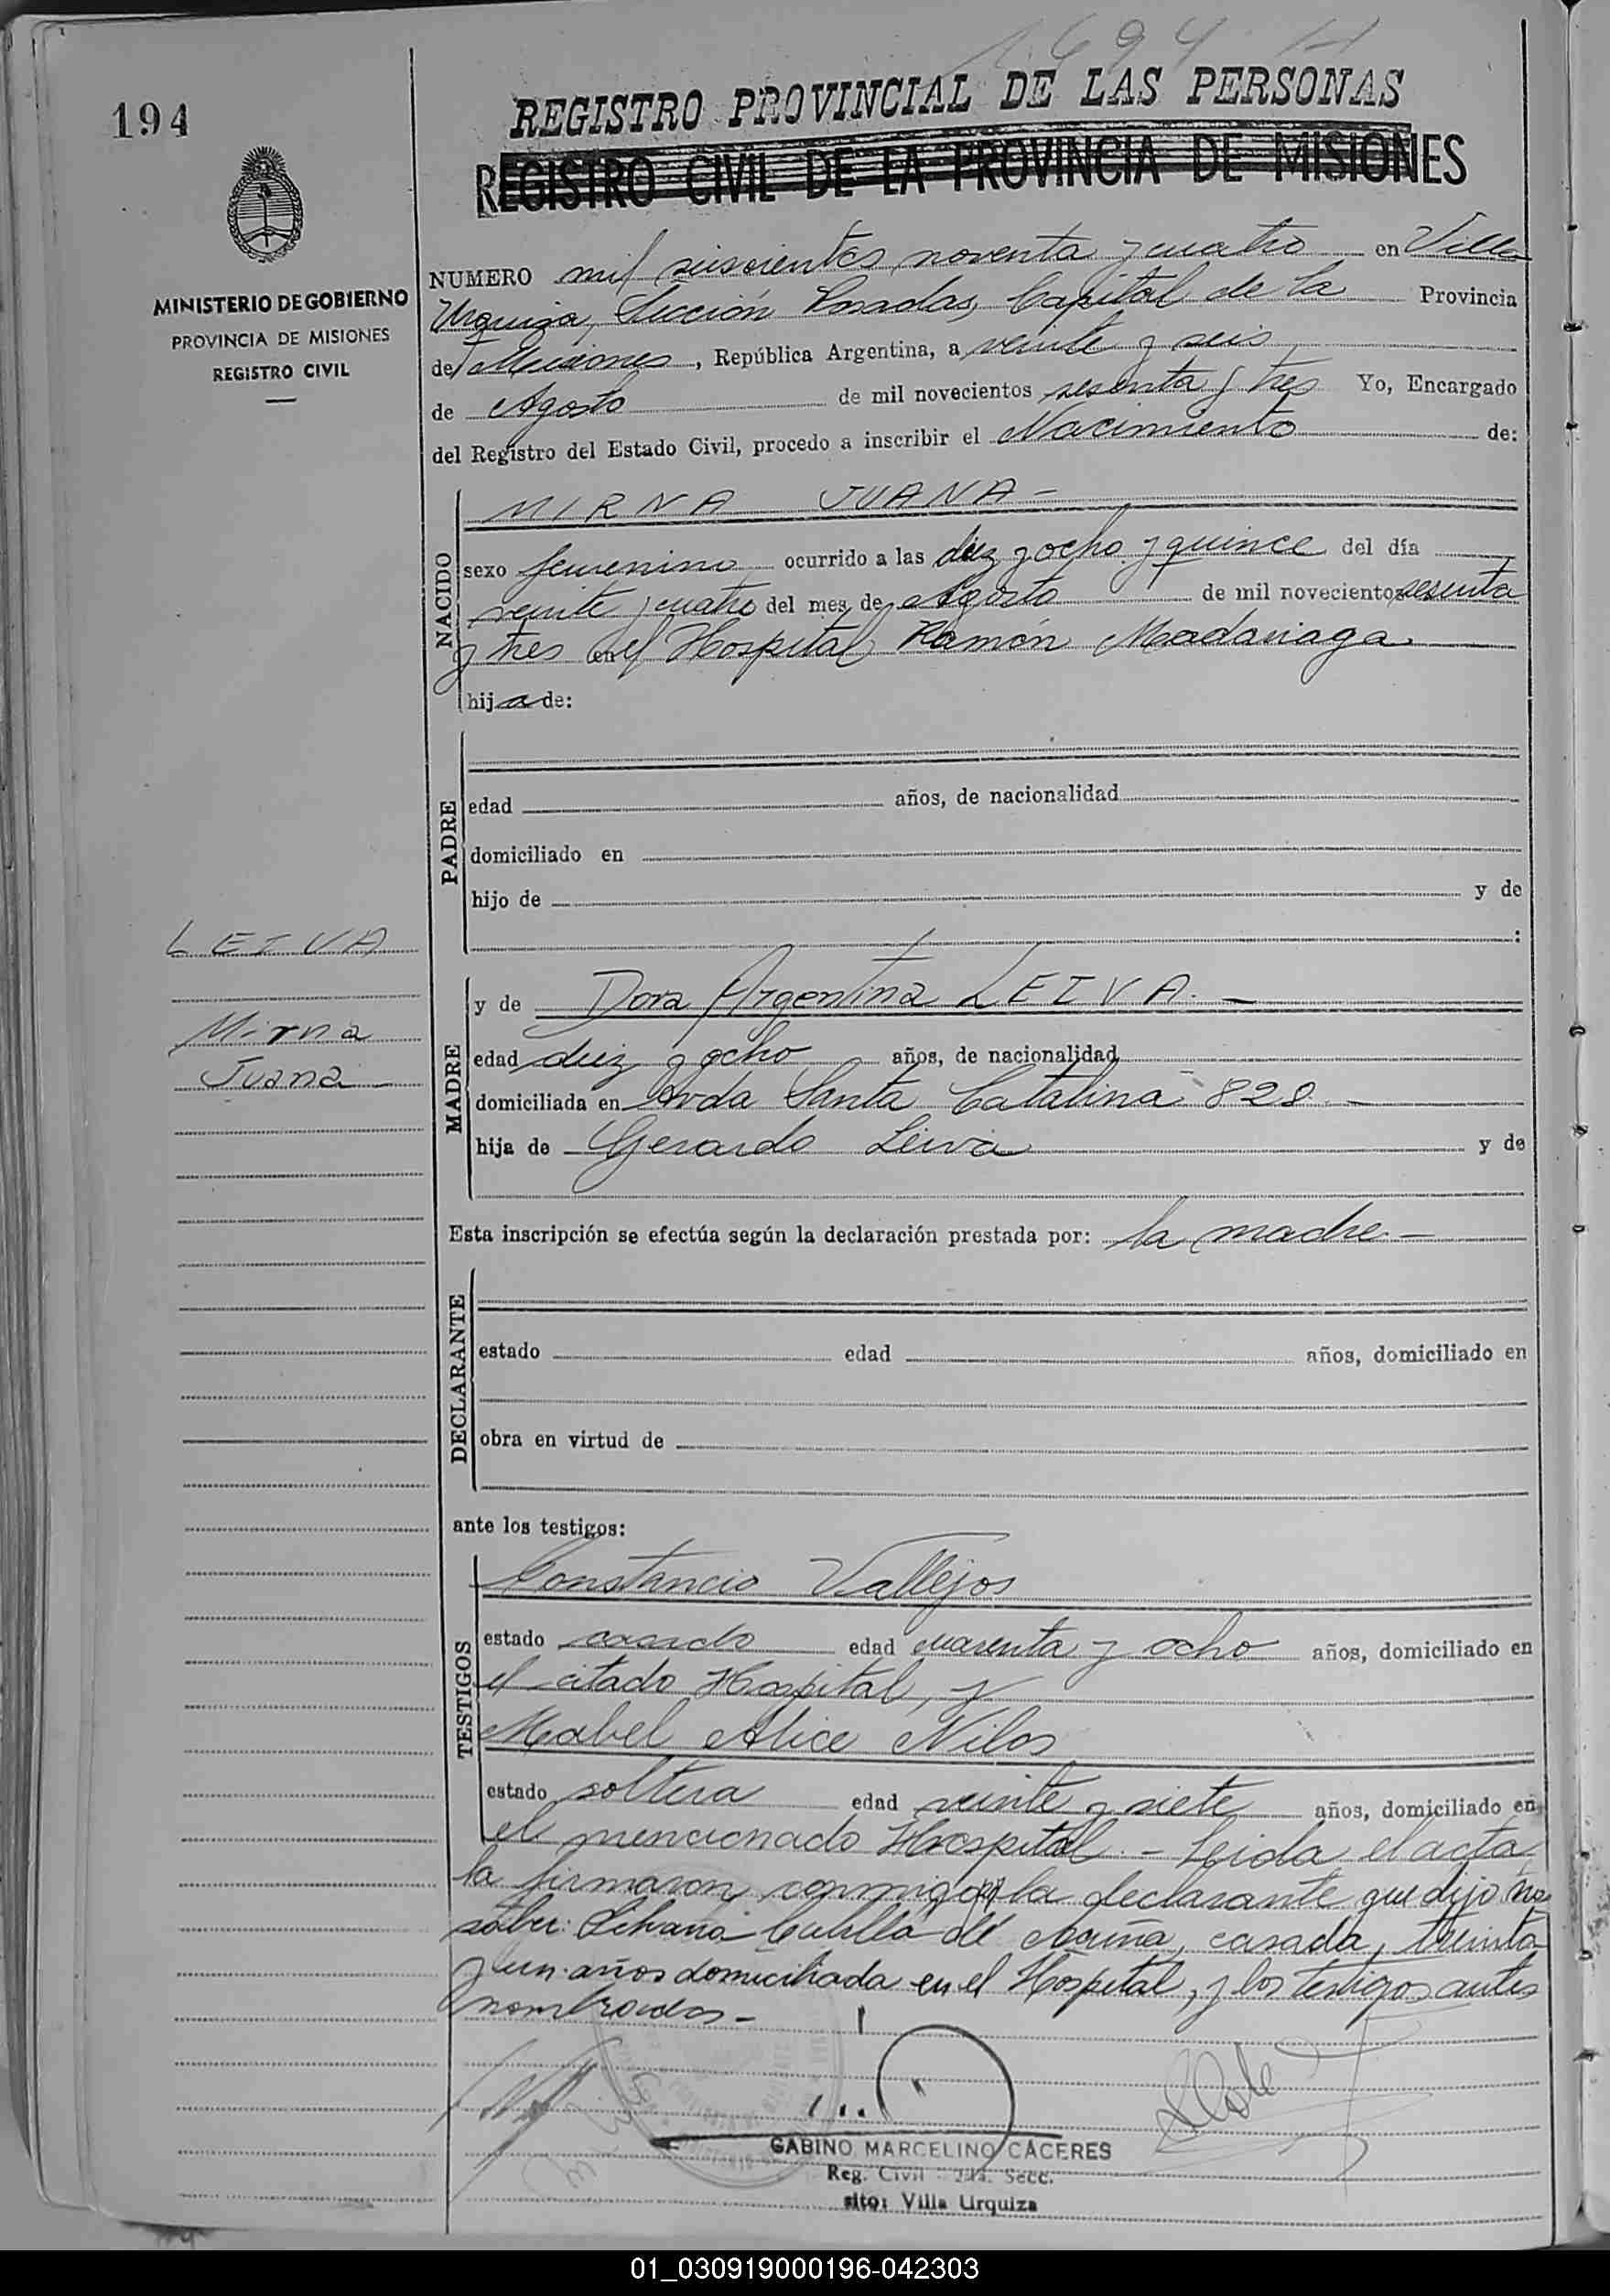 1694 H
194
REGISTRO PROVINCIAL DE LAS PERSONAS
REGISTRO CIVIL DE LA PROVINCIA DE MISIONES
MINISTERIO DE GOBIERNO
PROVINCIA DE MISIONES
REGISTRO CIVIL
NUMERO mil seiscientos noventa y cuatro en Villa
Urquiza, Sección Posadas, Capital de la Provincia
de Misiones, República Argentina, a veinte y seis
de Agosto de mil novecientos sesenta y tres Yo, Encargado
del Registro del Estado Civil, procedo a inscribir el Nacimiento de:
NACIDO
MIRNA JUANA -
sexo femenino ocurrido a las diez y ocho y quince del día
veinte y cuatro del mes de Agosto de mil novecientos sesenta
y tres en el Hospital Ramón Madariaga
hija de:
PADRE
edad años, de nacionalidad
domiciliado en
hijo de y de
:
LEIVA
Mirna
Juana -
MADRE
y de Dora Argentina LEIVA. -
edad diez y ocho años, de nacionalidad
domiciliada en Avda Santa Catalina 828 -
hija de Gerardo Leiva y de
Esta inscripción se efectúa según la declaración prestada por: la madre. -
DECLARANTE
estado edad años, domiciliado en
obra en virtud de
ante los testigos:
TESTIGOS
Constancio Vallejos
estado casado edad cuarenta y ocho años, domiciliado en
el citado Hospital, y
Mabel Alice Nilos
estado soltera edad veinte y siete años, domiciliado en
el mencionado Hospital. - Leida el acta
la firmaron conmigo la declarante que dijo no
saber: de Acuña, casada, treinta
y un años domiciliada en el Hospital, y los testigos antes
nombrados -
GABINO MARCELINO CACERES
Reg. Civil Secc.
sito: Villa Urquiza
01_030919000196-042303